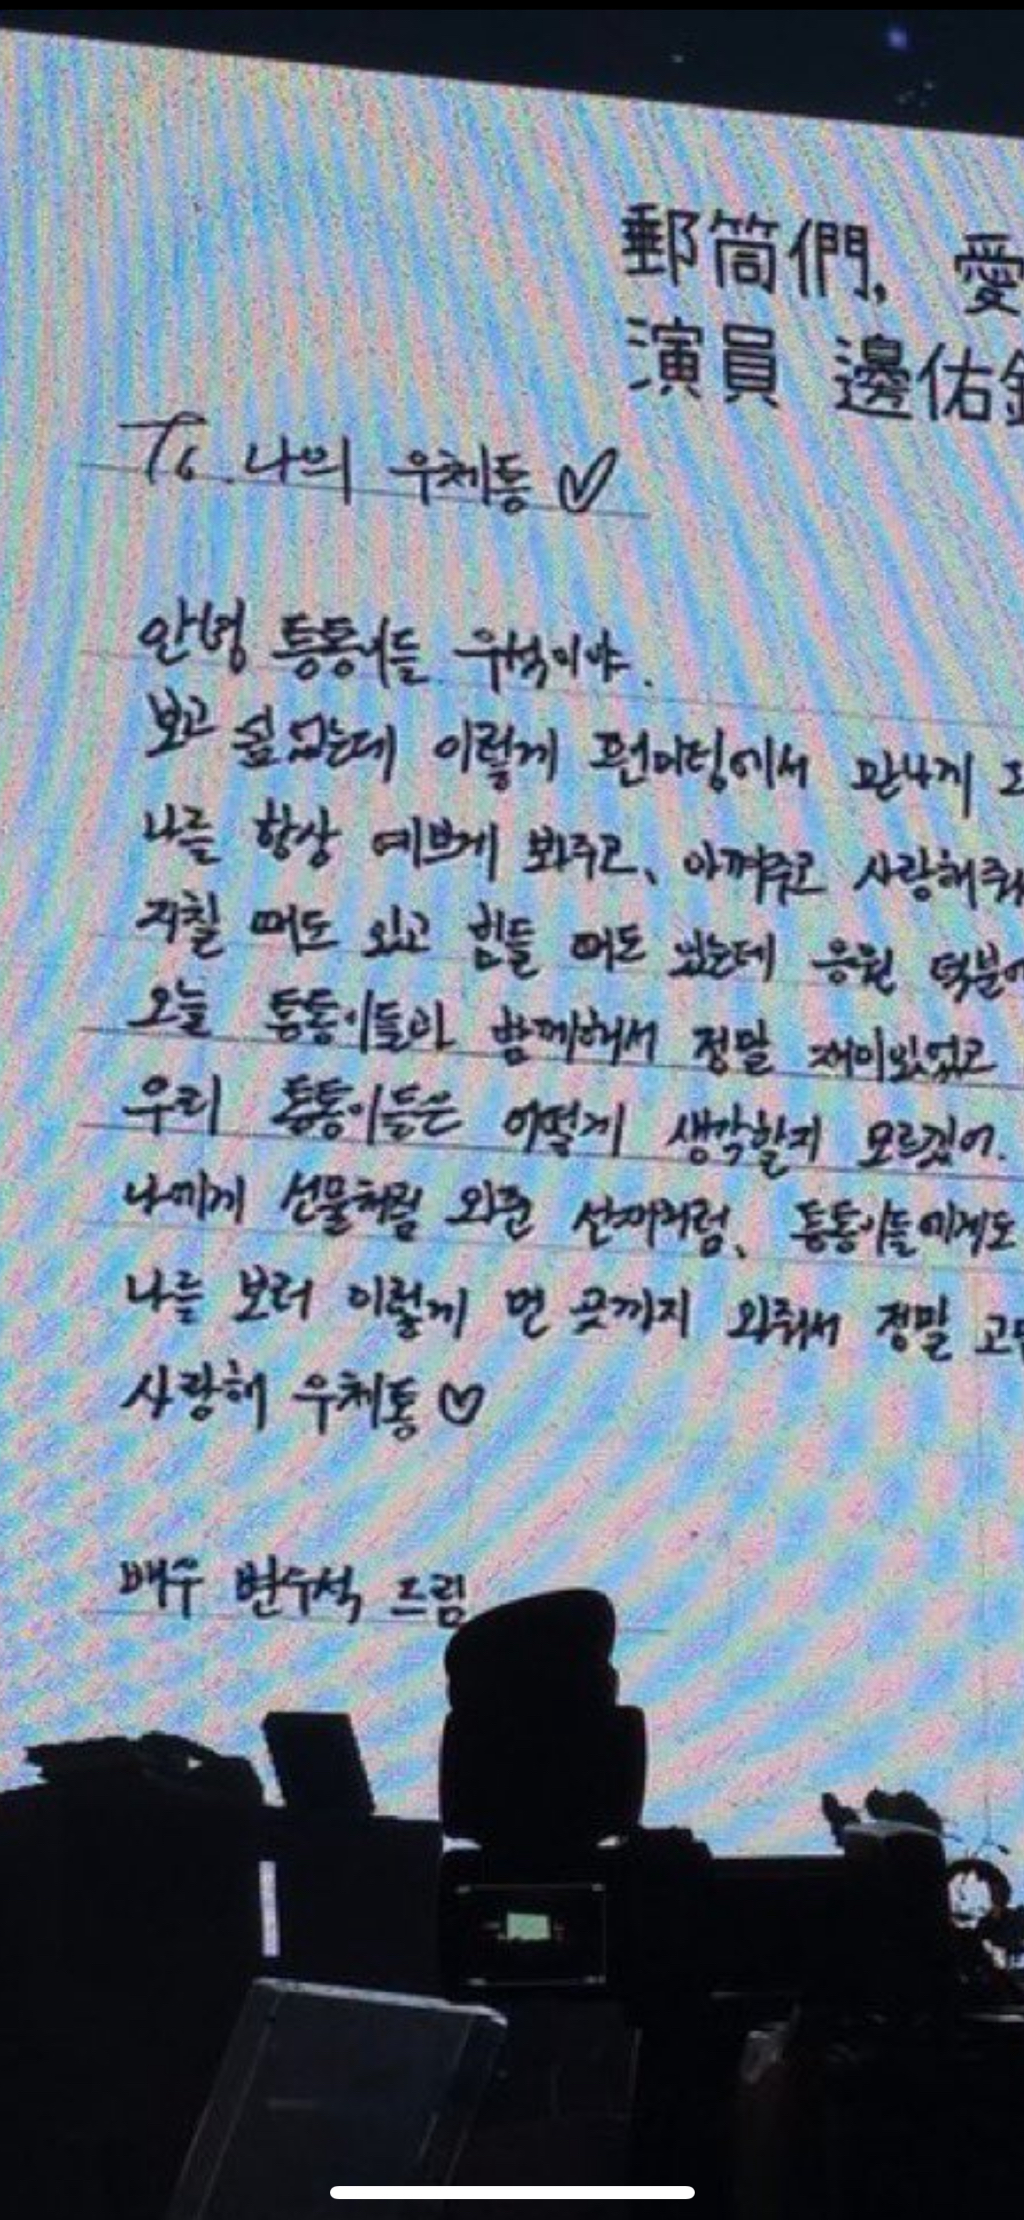 郵筒們, 愛
演員 邊佑
To. 나의 우체통♡
안녕 통통이들 우석이야.
보고 싶었는데 이렇게 팬미팅에서 만나게
나를 항상 예쁘게 봐주고, 아껴주고 사랑해줘
지칠 때도 있고 힘들 때도 있는데 응원 덕분에
오늘 통통이들과 함께해서 정말 재미있었고
우리 통통이들은 어떻게 생각할지 모르겠어.
나에게 선물처럼 와준 선재처럼, 통통이들에게도
나를 보러 이렇게 먼 곳까지 와줘서 정말
사랑해 우체통♡
배우 변우석 드림